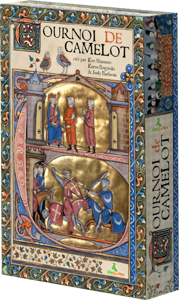 TOURNOI DE
CAMELOT
créé par Ken Shannon
Karen Boginski
& Jody Barbessi
TOURNOI de
CAMELOT